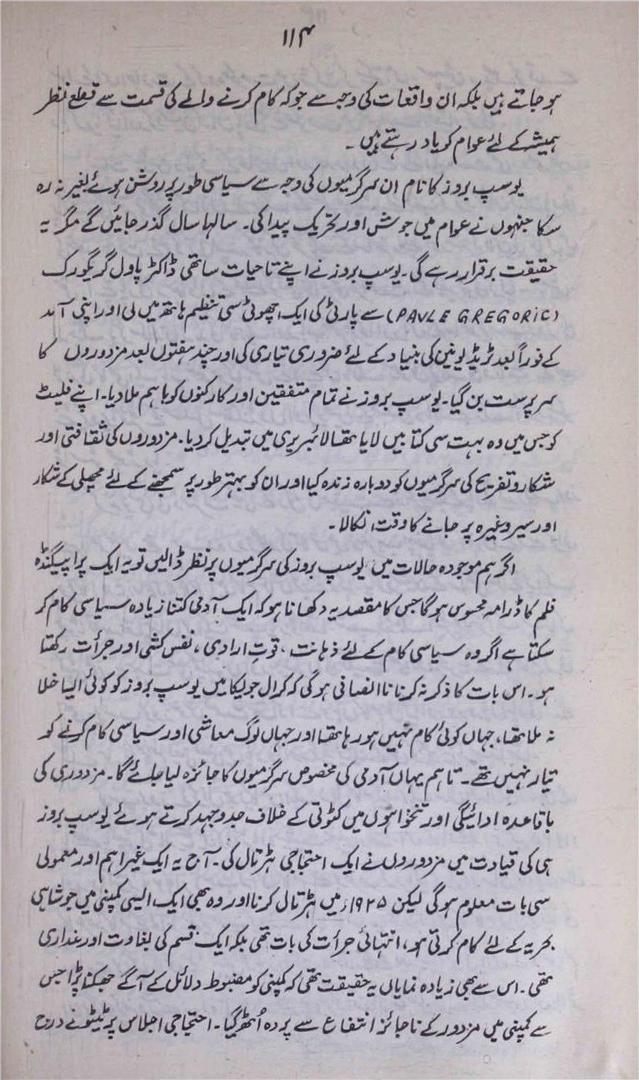 ۱۱۴
ہو جاتے ہیں بلکہ ان واقعات کی وجہ سے جو کہ کام کرنے والے کی قسمت سے قطع نظر
ہمیشہ کے لئے عوام کو یاد رہتے ہیں ۔
یوسپ بروز کا نام ان سرگرمیوں کی وجہ سے سیاسی طور پر روشن ہوئے بغیر نہ رہ
سکا جنہوں نے عوام میں جوش اور تحریک پیدا کی۔ سالہا سال گذر جائیں گے مگر یہ
حقیقت برقرار رہے گی۔ یوسپ بروز نے اپنے تاحیات ساتھی ڈاکٹر پاول گریگورک
(PAVLE GREGORIC) سے پارٹی کی ایک چھوٹی سی تنظیم ہاتھ میں لی اور اپنی آمد
کے فوراً بعد ٹریڈ یونین کی بنیاد کے لئے ضروری تیاری کی اور چند ہفتوں بعد مزدوروں کا
سرپرست بن گیا۔ یوسپ بروز نے تمام متفقین اور کارکنوں کو باہم ملا دیا۔ اپنے فلیٹ
کو جس میں وہ بہت سی کتابیں لایا تھا لائبریری میں تبدیل کر دیا۔ مزدوروں کی ثقافتی اور
شکار و تفریح کی سرگرمیوں کو دوبارہ زندہ کیا اور ان کو بہتر طور پر سمجھنے کے لئے مچھلی کے شکار
اور سیر وغیرہ پر جانے کا وقت نکالا ۔
اگر ہم موجودہ حالات میں یوسپ بروز کی سرگرمیوں پر نظر ڈالیں تو یہ ایک پراپیگنڈہ
فلم کا ڈرامہ محسوس ہو گا جس کا مقصد یہ دکھانا ہو کہ ایک آدمی کتنا زیادہ سیاسی کام کر
سکتا ہے اگر وہ سیاسی کام کے لئے ذہانت ، قوت ارادی ، نفس کشی اور جرأت رکھتا
ہو۔ اس بات کا ذکر نہ کرنا ناانصافی ہو گی کہ کرال جویکا میں یوسپ بروز کو کوئی ایسا خلا
نہ ملا تھا، جہاں کوئی کام نہیں ہو رہا تھا اور جہاں لوگ معاشی اور سیاسی کام کرنے کو
تیار نہیں تھے۔ تاہم یہاں آدمی کی مخصوص سرگرمیوں کا جائزہ لیا جائے گا۔ مزدوری کی
باقاعدہ ادائیگی اور تنخواہوں میں کٹوتی کے خلاف جدوجہد کرتے ہوئے یوسپ بروز
ہی کی قیادت میں مزدوروں نے ایک احتجاجی ہڑتال کی۔ آج یہ ایک غیر اہم اور معمولی
سی بات معلوم ہو گی لیکن ۱۹۲۵ء میں ہڑتال کرنا اور وہ بھی ایک ایسی کمپنی میں جو شاہی
بحریہ کے لئے کام کرتی ہو، انتہائی جرأت کی بات تھی بلکہ ایک قسم کی بغاوت اور غداری
تھی۔ اس سے بھی زیادہ نمایاں یہ حقیقت تھی کہ کمپنی کو مضبوط دلائل کے آگے جھکنا پڑا جس
سے کمپنی میں مزدور کے ناجائز انتفاع سے پردہ اُٹھ گیا۔ احتجاجی اجلاس پر ٹیٹو نے درج